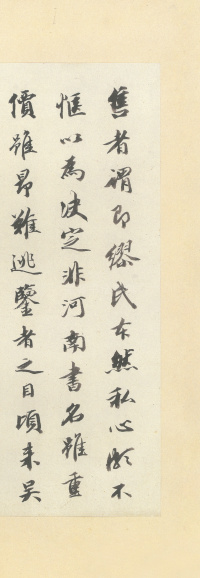 售者謂即繆氏本然私心頗不
愜以為決定非河南書名雖重
價雖昂難逃鑒者之目頃來吴